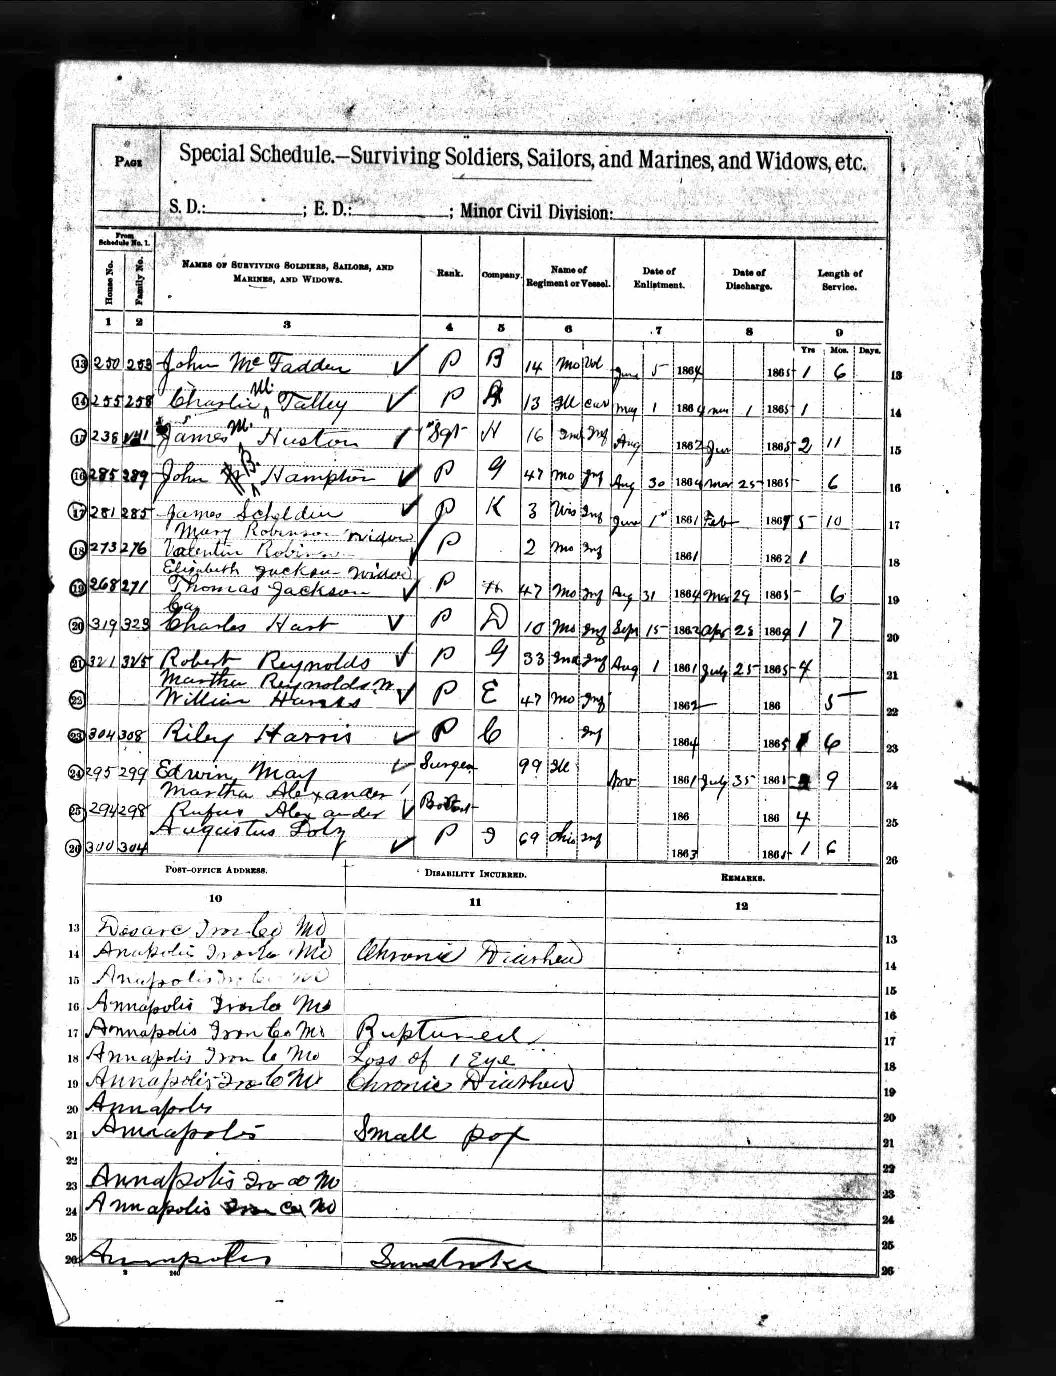 PAGE
Special Schedule.—Surviving Soldiers, Sailors, and Marines, and Widows, etc.
S. D.: ; E. D.: ; Minor Civil Division:
From Schedule No. 1.
House No. Family No. NAMES OF SURVIVING SOLDIERS, SAILORS, AND MARINES, AND WIDOWS. Rank. Company. Name of Regiment or Vessel. Date of Enlistment. Date of Discharge. Length of Service.
1 2 3 4 5 6 7 8 9
Yrs Mos. Days.
13 250 253 John McFadden P B 14 Mo Vol June 5 1864 1865 1 6 13
14 255 258 Charlie M. Talley P 13 Ill Cav May 1 1864 1 1865 1 14
236 James M. Huston Sgt H 16 Inf Aug 1862 1865 2 11 15
16 285 289 John B Hampton P G 47 Mo Inf Aug 30 1864 Mar 25 1865 6 16
17 281 285 James P K 3 Wis Inf June 1st 1861 Feb 5 10 17
Mary Robinson widow
18 273 276 Valentin Robinson P 2 Mo Inf 1861 1862 1 18
Elizabeth Jackson Widow
19 268 271 Thomas Jackson P H 47 Mo Inf Aug 31 1864 Mar 29 1865 6 19
20 319 323 Charles Hart P D 10 Mo Inf Sept 15 1862 Apr 28 1 7 20
21 321 325 Robert Reynolds P G 33 Ind Inf Aug 1 1861 July 25 1865 4 21
Martha Reynolds W
22 William P E 47 Mo Inf 186 5 22
23 304 308 Riley Harris P C Inf 1864 1865 6 23
24 295 299 Edwin May Surgeon 99 Ill Nov 1861 July 35 1865 9 24
Martha Alexander
25 294 298 Rufus Alexander 186 186 4 25
26 300 304 Augustus P I 69 Ohio Inf 1863 1 6 26
POST-OFFICE ADDRESS. DISABILITY INCURRED. REMARKS.
10 11 12
13 Desarc Iron Co Mo 13
14 Anapolis Iron Co Mo Chronic Diarhea 14
15 Annapolis Iron Co Mo 15
16 Annapolis Iron Co Mo 16
17 Annapolis Iron Co Mo Ruptured 17
18 Annapolis Iron Co Mo Loss of 1 Eye 18
19 Annapolis Iron Co Mo Chronic Diarhea 19
20 Annapolis 20
21 Annapolis Small pox 21
22 22
23 Annapolis Iron Co Mo 23
24 Annapolis Iron Co Mo 24
25 25
26 Annapolis Sunstroke 26